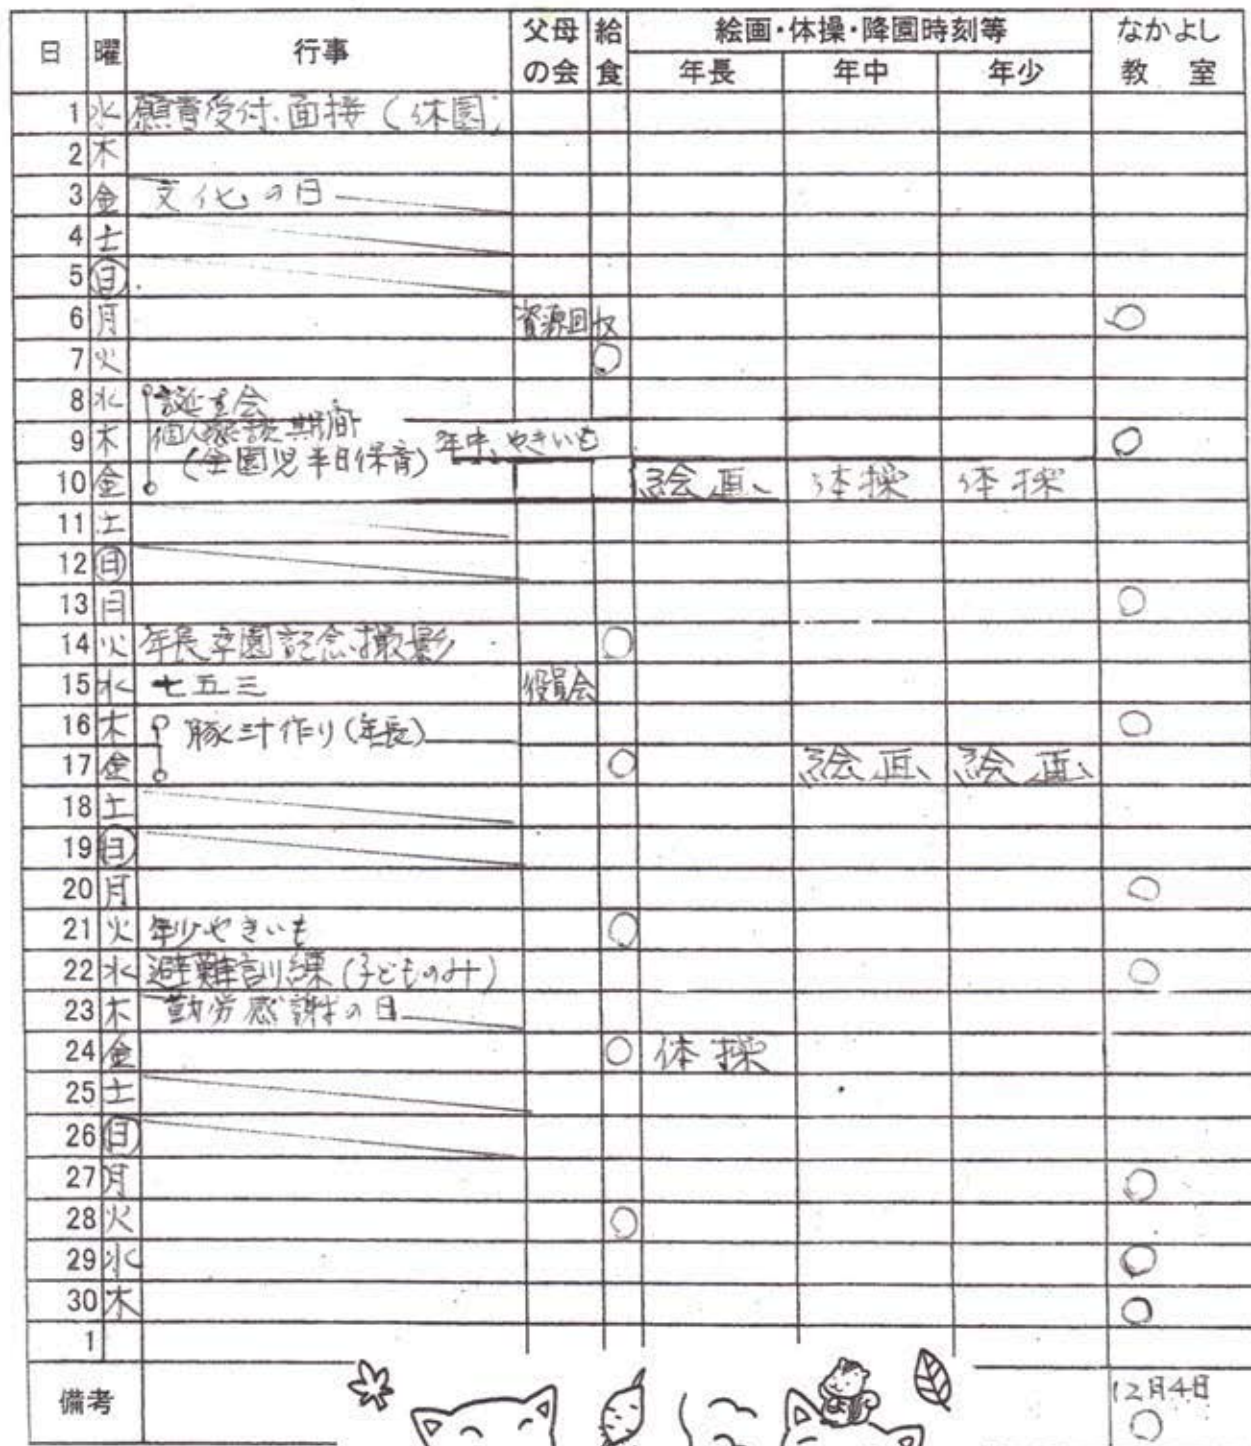 日 曜 行事 父母の会 給食 絵画・体操・降園時刻等 なかよし教室
年長 年中 年少
1 水 願書受付、面接（休園）
2 木
3 金 文化の日
4 土
5 日
6 月 資源回収 ○
7 火 ○
8 水 誕生会
個人懇談期間
9 木 (全園児半日保育) 年中、やきいも ○
10 金 絵画 体操 体操
11 土
12 日
13 日 ○
14 火 年長卒園記念撮影 ○
15 水 七五三 役員会
16 木 豚汁作り(年長) ○
17 金 ○ 絵画 絵画
18 土
19 日
20 月 ○
21 火 年少やきいも ○
22 水 避難訓練(子どものみ) ○
23 木 勤労感謝の日
24 金 ○ 体操
25 土
26 日
27 月 ○
28 火 ○
29 水 ○
30 木 ○
1
備考 12月4日
○